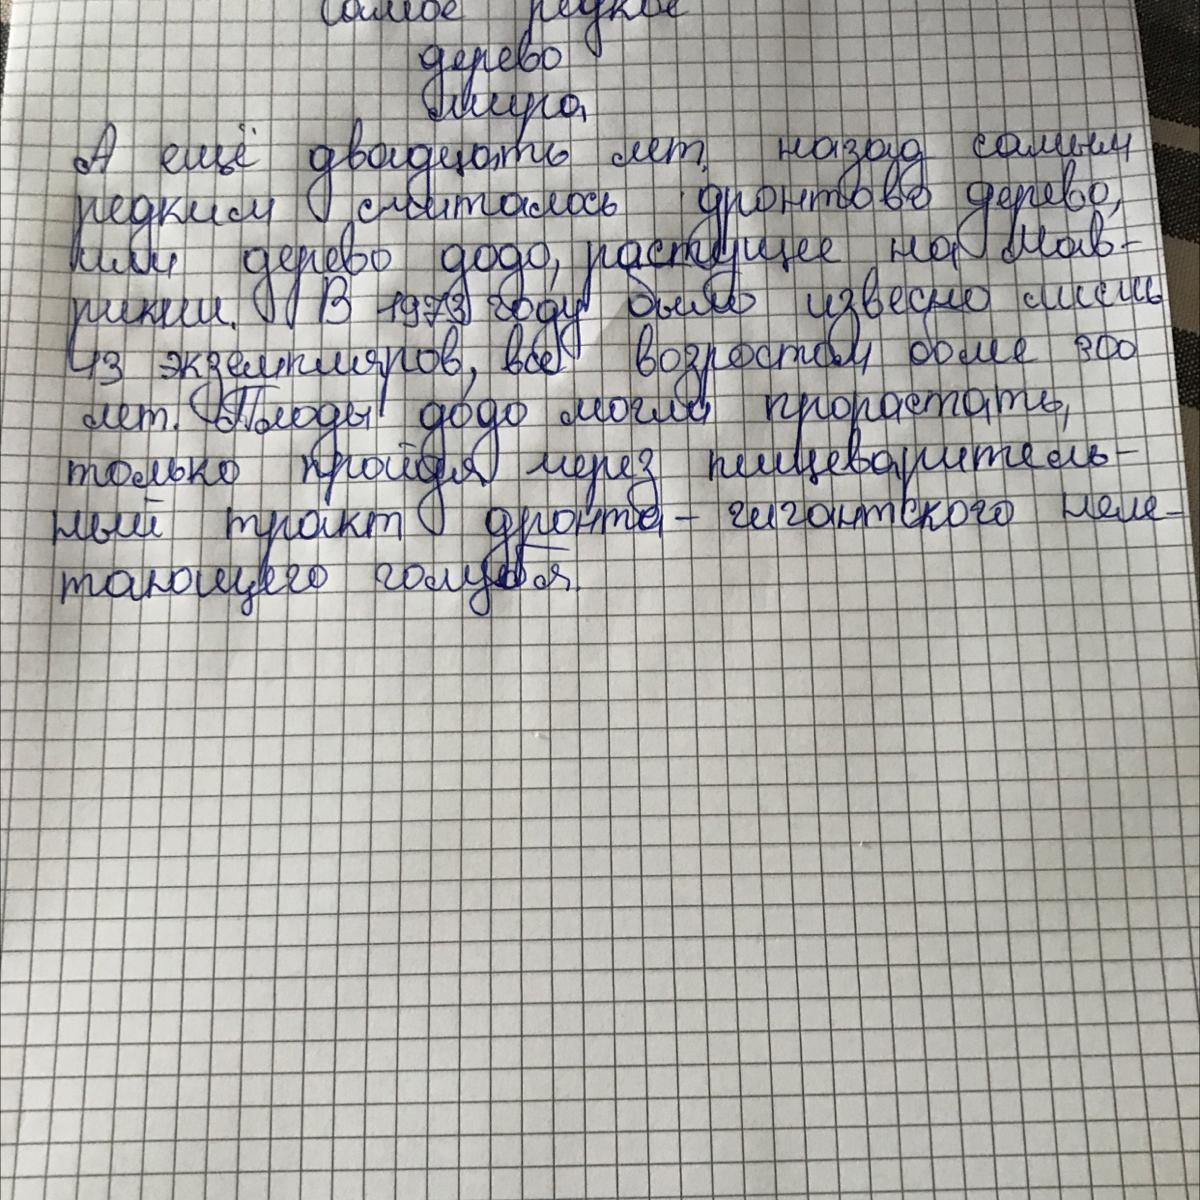 самое редкое
дерево
мира
А ещё двадцать лет назад самым
редким считалось дронтово дерево,
или дерево додо, растущее на Мав-
рикии. В 1973 году было извесно лишь
13 экземпляров, все возростом более 300
лет. Плоды додо могли прорастать,
только пройдя через пищеваритель-
ный тракт дронта - гигантского неле-
тающего голубя.